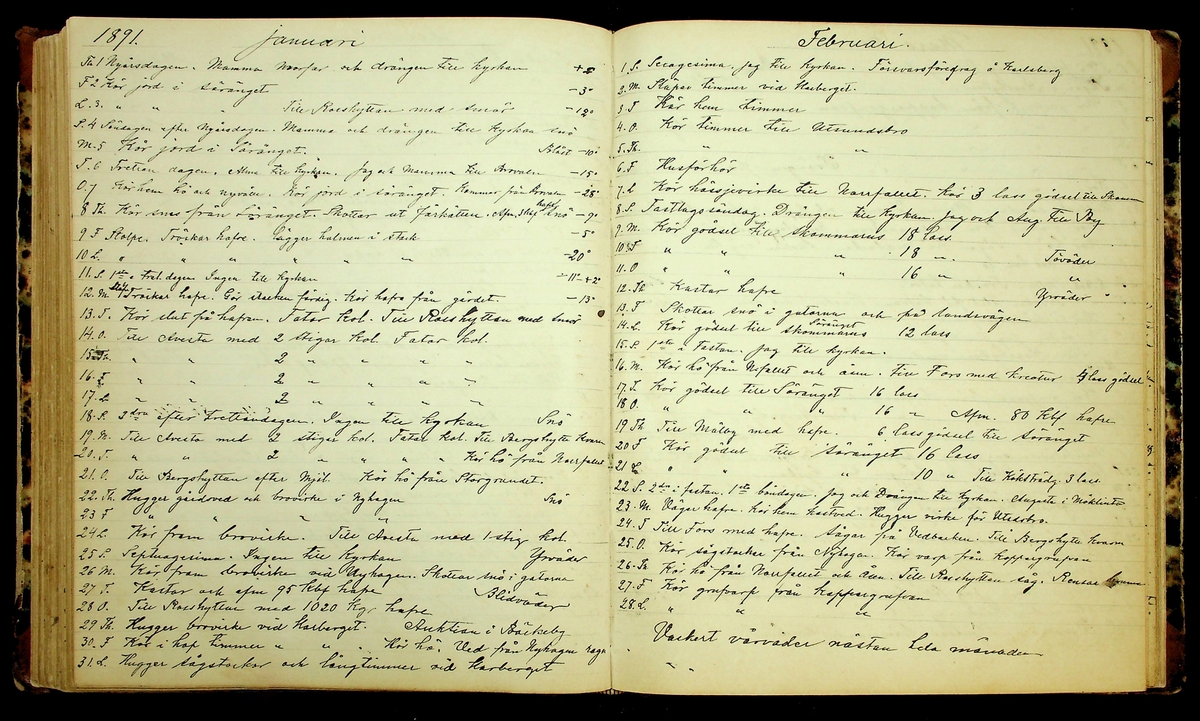 1891. Januari
Th. 1 Nyårsdagen. Mamma morfar och drängen till kyrkan
F 2 Kör jord i Söränget -3°
L. 3. " " " Till Roeshyttan med smör -12°
S. 4 Söndagen efter Nyårsdagen. Mamma och drängen till kyrkan snö
M. 5 Kör jord i Söränget. Blåst -10°
T. 6 Tretton dagen. Alma till kyrkan. Jag och Mamma till Arvalen -15°
O. 7 Kör hem hö och nyvälen. Kör jord i Söränget. Kommer från Arvalen -28°
8 Th. Kör snes från Söränget. Skottar ut fårkätten. Afm. snö -9°
9 F Stolpe. Tröskar hafre. Lägger halmen i stack -5°
10 L. " " " " " " -20°
11. S. 1sta e. Trett.dagen Ingen till kyrkan -11° +2°
12. M. Slut Tröskar hafre. Gör stacken färdig. Kör hafre från gärdet. -13°
13. T. Kör slut på hafren. Fatar kol. Till Roeshyttan med smör
14. O. Till Avesta med 2 stigar kol. Fatar kol.
15 Th. " " 2 " " " "
16. F " " 2 " " " "
17. L " " 2 " " " "
18. S. 2dra efter trettondagen. Ingen till kyrkan Snö
19. M. Till Avesta med 2 stigar kol. Fatar kol. Till Bergshytte kvarn
20. T. " " 2 " " " " Kör hö från Norrfallet
21. O. Till Bergshyttan efter mjöl. Kör hö från Storgrundet.
22. Th. Hugger gärdved och brovirke i Nyhagen Snö
23 F " " " "
24 L. Kör fram brovirke. Till Avesta med 1 stig kol.
25 S. Septuagesima. Ingen till kyrkan Yrväder
26 M. Kör fram brovirke vid Nyhagen. Skottar snö i gatorna
27 T. Kastar och afm 95 kbf hafre Blidväder
28 O. Till Roeshyttan med 1020 Kgr hafre
29 Th. Hugger brovirke vid Harberget. Auktion i Bäckeby
30. F Kör i hop timmer " " " Kör hö. Ved från Nyhagen
31. L. Hugger sågstockar och långtimmer vid Harberget
Februari.
1. S. Sexagesima. Jag till kyrkan. Försvarsföredrag å Karlsberg
2. M. Släpar timmer vid Harberget.
3. T Kör hem timmer
4. O. Kör timmer till Utsundsbro
5. Th. " "
6. F Husförhör
7. L Kör hässjevirke till Norrfallet. Kör 3 lass gödsel till Skomm
8. S. Fastlagssöndag. Drängen till kyrkan. Jag och Aug. till By
9. M. Kör gödsel till Skommarns 18 lass.
10. T " " " 18 " Töväder
11. O " " " 16 " "
12. Th Kastar hafre Yrväder
13. F Skottar snö i gatorna och på landsvägen
14. L. Kör gödsel till Skommarns Söränget 12 lass
15. S. 1sta i Fastan. Jag till kyrkan.
16. M. Kör hö från Nifallet och åen. Till Fors med kreatur 4 lass gödsel
17. T. Kör gödsel till Söränget 16 lass
18 O. " " " 16 " Afm. 80 Kbf hafre
19 Th Till Målby med hafre. 6 lass gödsel till Söränget
20 F Kör gödsel till Söränget 16 lass
21 L. " " " 10 " Till Köksträdg. 3 lass.
22 S. 2dra i fastan. 1sta böndagen. Jag och Drängen till kyrkan. Augusta i Möklinta
23. M. Väger hafre. Kör hem kastved. Hugger virke för Utsbro.
24. T Till Fors med hafre. Sågar på Vedbacken. Till Bergshytte kvarn
25. O. Kör sågstockar från Nyhagen. Kör varp från Koppargrufvan
26. Th Kör hö från Norrfallet och Åen. Till Roeshyttan såg. Rensar
27. F Kör grufvarp från Koppargrufvan
28. L. " " "
Vackert vårväder nästan hela månaden